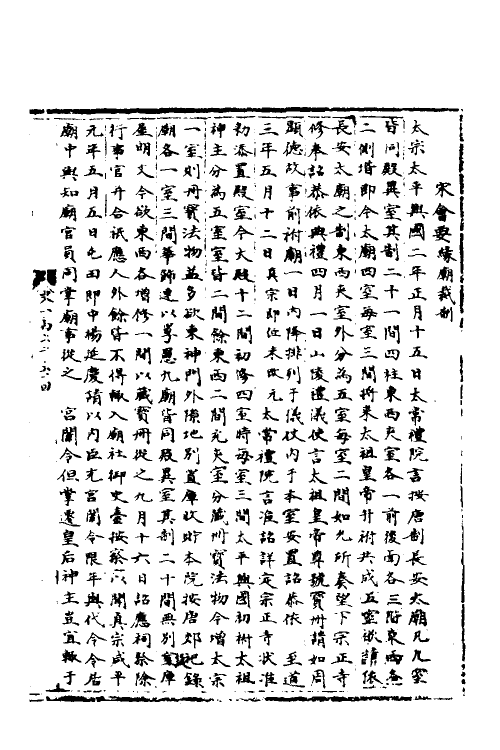 宋會要緣廟裁制
太宗太平興國二年正月十五日太常禮院言按唐制長安太廟凡九室
皆同殿異室其制二十一間四柱東西夾室各一前後面各三階東西各
二側堦即今太廟四室每室三間將來太祖皇帝升祔共成五室欲請依
長安太廟之制東西夾室外分為五室每室二間如允所奏望下宗正寺
修奉詔恭依典禮四月一日山陵禮儀使言太祖皇帝尊號寶冊請如周
顯德故事前祔廟一日內降排列于儀仗內于本室安置詔恭依 至道
三年五月十二日真宗即位未改元太常禮院言准詔詳定宗正寺狀准
初添置殿室今大殿十二間初修四室時每室三間太平興國初祔太祖
神主分為五室室皆二間餘東西二間充夾室分藏冊寶法物今增太宗
一室則冊寶法物益多欲東神門外隙地別置庫收貯本院按唐郊祀錄
廟各一室三間華飾連以罘罳九廟皆同殿異室其制二十間無別置庫
屋明文今欲東西各增修一間以藏寶冊從之九月十六日詔應祠祭除
行事官并合祗應人外餘皆不得輒入廟社御史臺按察以聞真宗咸平
元年五月五日屯田郎中楊延慶請以內臣充宮闈令限年與代今令居
廟中與知廟官員同掌廟事從之 宮闈令但掌遷皇后神主豈宜輒于